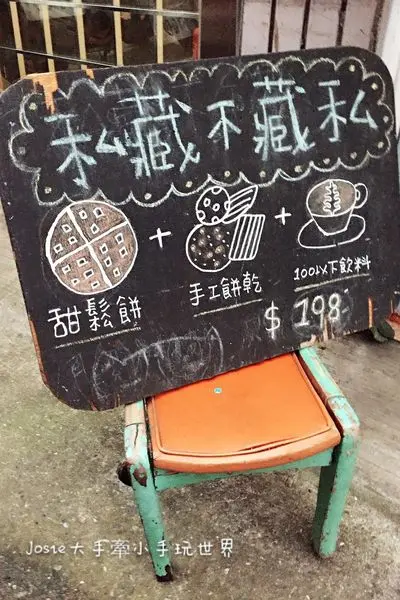 私藏不藏私
甜鬆餅
+
手工餅乾
+
100以下飲料
$198
Josie大手牽小手玩世界